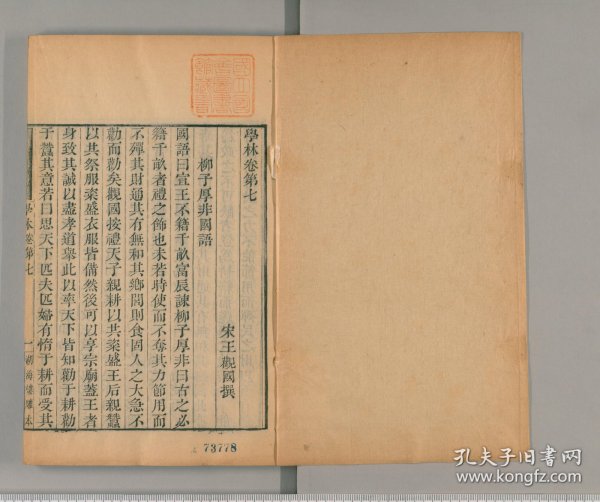 學林卷第七
宋王觀國撰
柳子厚非國語
國語曰宣王不籍千畝富辰諫柳子厚非曰古之必
籍千畝者禮之飾也未若時使而不奪其力節用而
不殫其財通其有無和其鄉閭則食固人之大急不
勸而勸矣觀國按禮天子親耕以共粢盛王后親蠶
以共祭服粢盛衣服皆備然後可以享宗廟蓋王者
身致其誠以盡孝道舉此以率天下皆知勸于耕勸
于蠶其意若曰思天下匹夫匹婦有惰于耕而受其
學林卷第七
一
湖海樓雕本
73778
孔夫子旧书网
www.kongfz.com